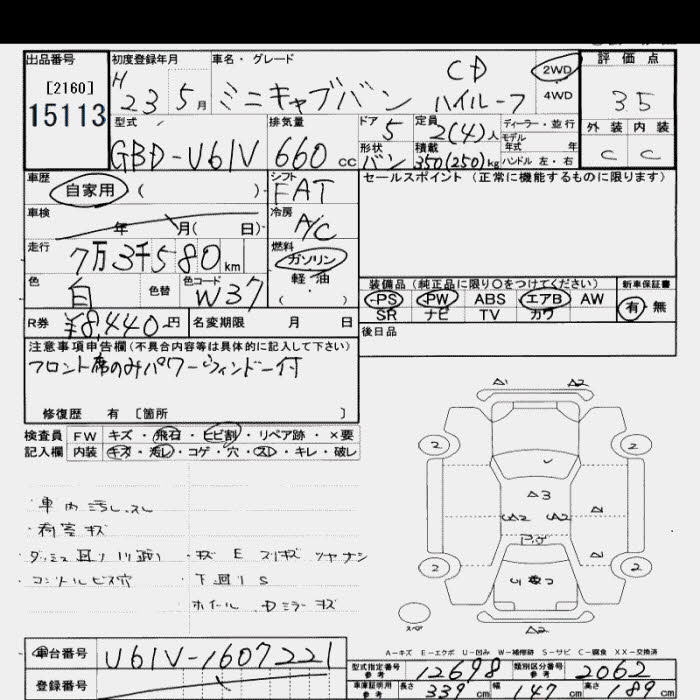 出品番号 初度登録年月 車名・グレード 評価点
[2160] H 23 5月 ミニキャブバン CD ハイルーフ 2WD 4WD 3.5
15113
型式 排気量 ドア 5 定員 2(4)人 ディーラー・並行 外装 内装
モデル年式 年
GBD-U61V 660cc 形状 バン 積載 350(250)kg ハンドル 左・右 C C
車歴 シフト セールスポイント (正常に機能するものに限ります)
自家用 ( ) FAT
車検 冷房
年 月( 日) A/C
走行 燃料
7万3千580km ガソリン
軽油
色 白 色替 色コード W37 ( )
装備品 (純正品に限り○をつけてください) 新車保証書
PS PW ABS エアB AW 有・無
SR ナビ TV カワ
R券 ¥8,440円 名変期限 月 日
後日品
注意事項申告欄(不具合内容等は具体的に記入して下さい)
フロント席のみパワーウィンドー付
修復歴 有 [箇所 ]
検査員 FW キズ・飛石・ヒビ割・リペア跡・×要
記入欄 内装 キズ・汚レ・コゲ・穴・スレ・キレ・破レ
・車内汚レ、スレ
・荷室キズ
・コントルビス穴 ・下回りS
A1 A2
2 2
A3
A2 A2
2 2
スペア
A2
A-キズ E-エクボ U-凹み W-補修跡 S-サビ C-腐食 XX-交換済
車台番号 U61V-1607221
登録番号
型式指定番号 参考 12698 類別区分番号 参考 2062
車庫証明用 参考 長さ 339cm 幅 147cm 高さ 89cm